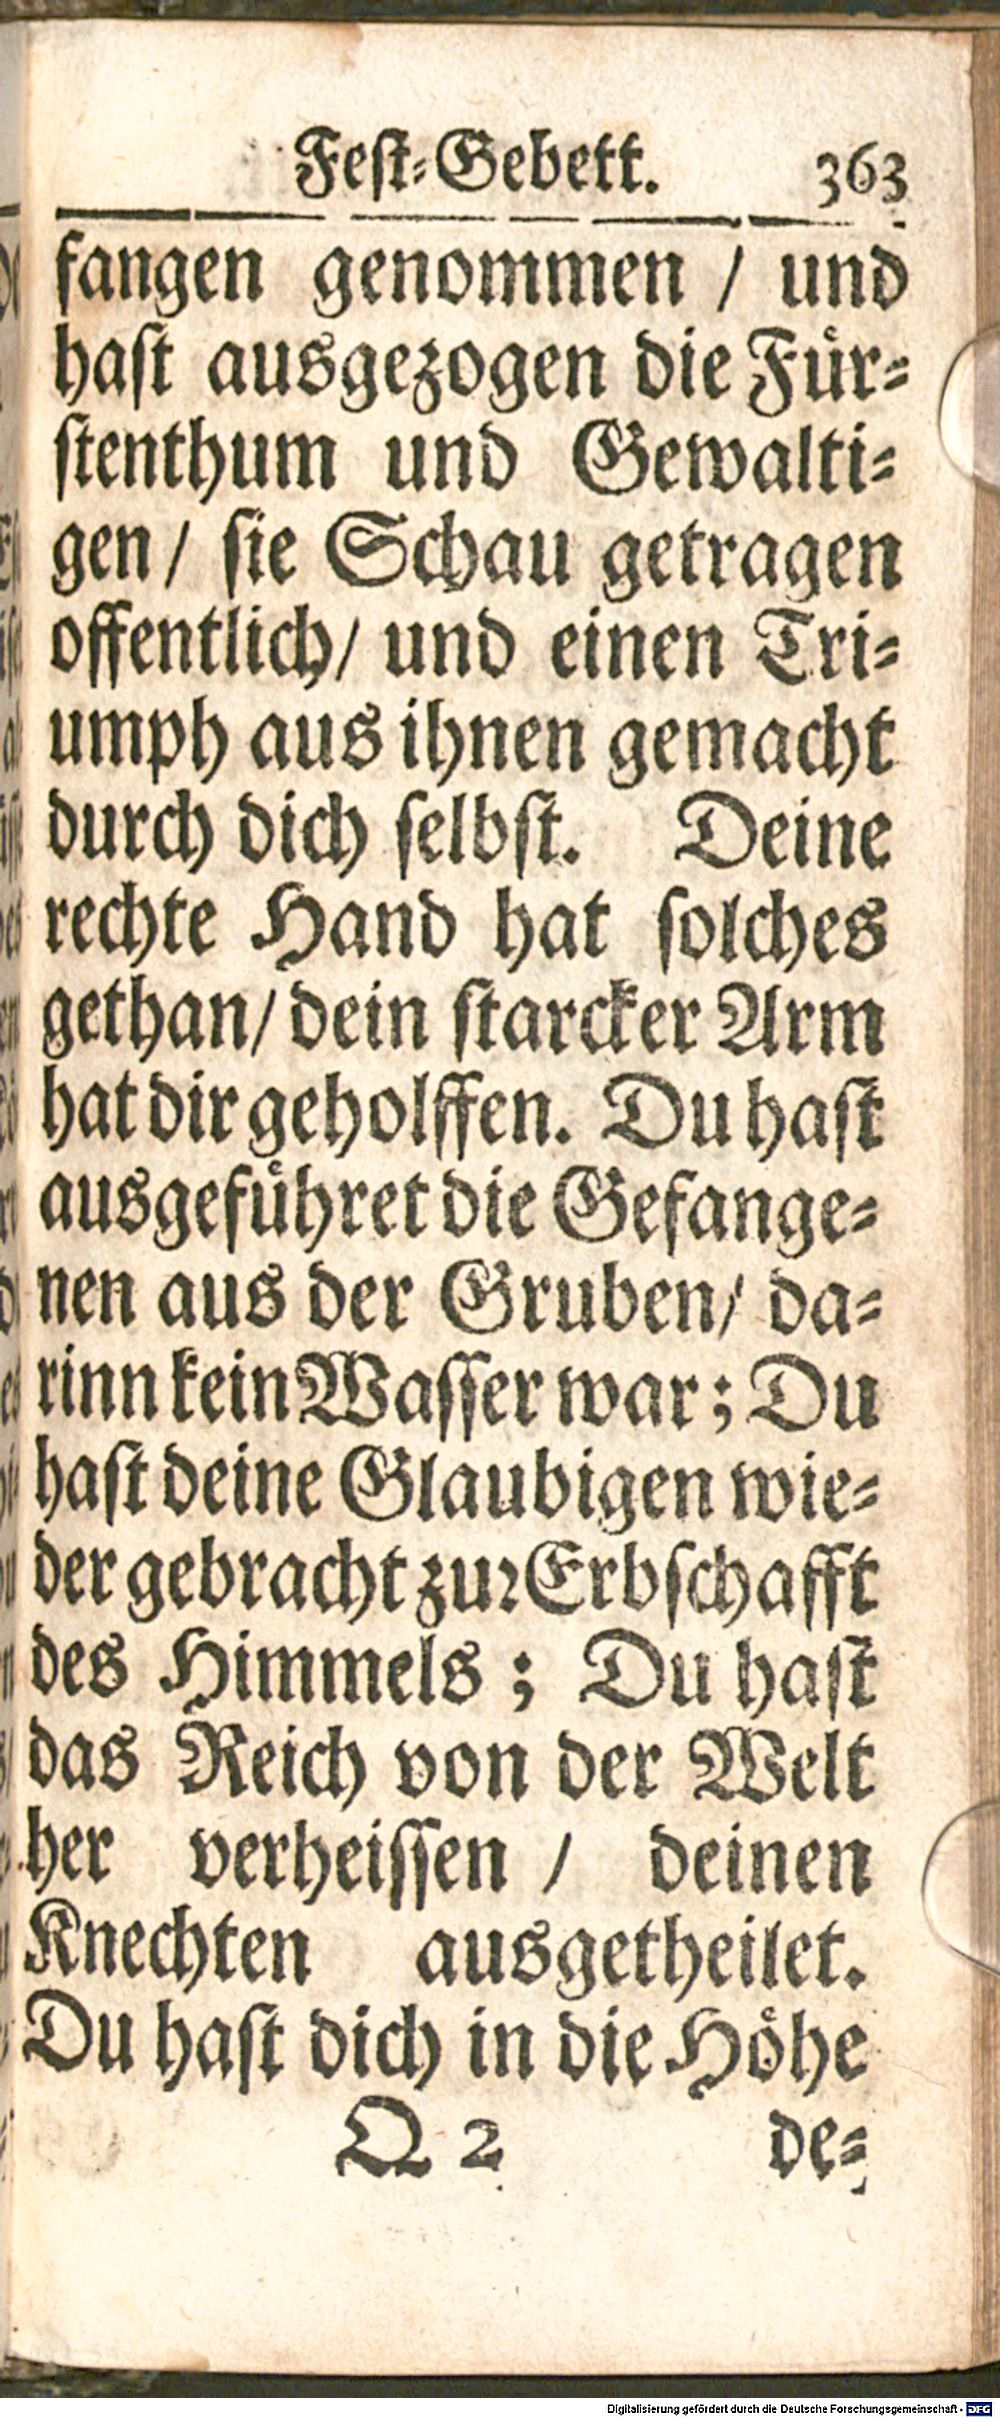 Feſt-Gebett. 363
fangen genommen / und
haſt ausgezogen die Fuͤr-
ſtenthum und Gewalti-
gen / ſie Schau getragen
offentlich / und einen Tri-
umph aus ihnen gemacht
durch dich ſelbſt. Deine
rechte Hand hat ſolches
gethan / dein ſtarcker Arm
hat dir geholffen. Du haſt
ausgefuͤhret die Gefange-
nen aus der Gruben / da-
rinn kein Waſſer war; Du
haſt deine Glaubigen wie-
der gebracht zuꝛ Erbſchafft
des Himmels; Du haſt
das Reich von der Welt
her verheiſſen / deinen
Knechten ausgetheilet.
Du haſt dich in die Hoͤhe
Q 2 de-
Digitalisierung gefördert durch die Deutsche Forschungsgemeinschaft - DFG